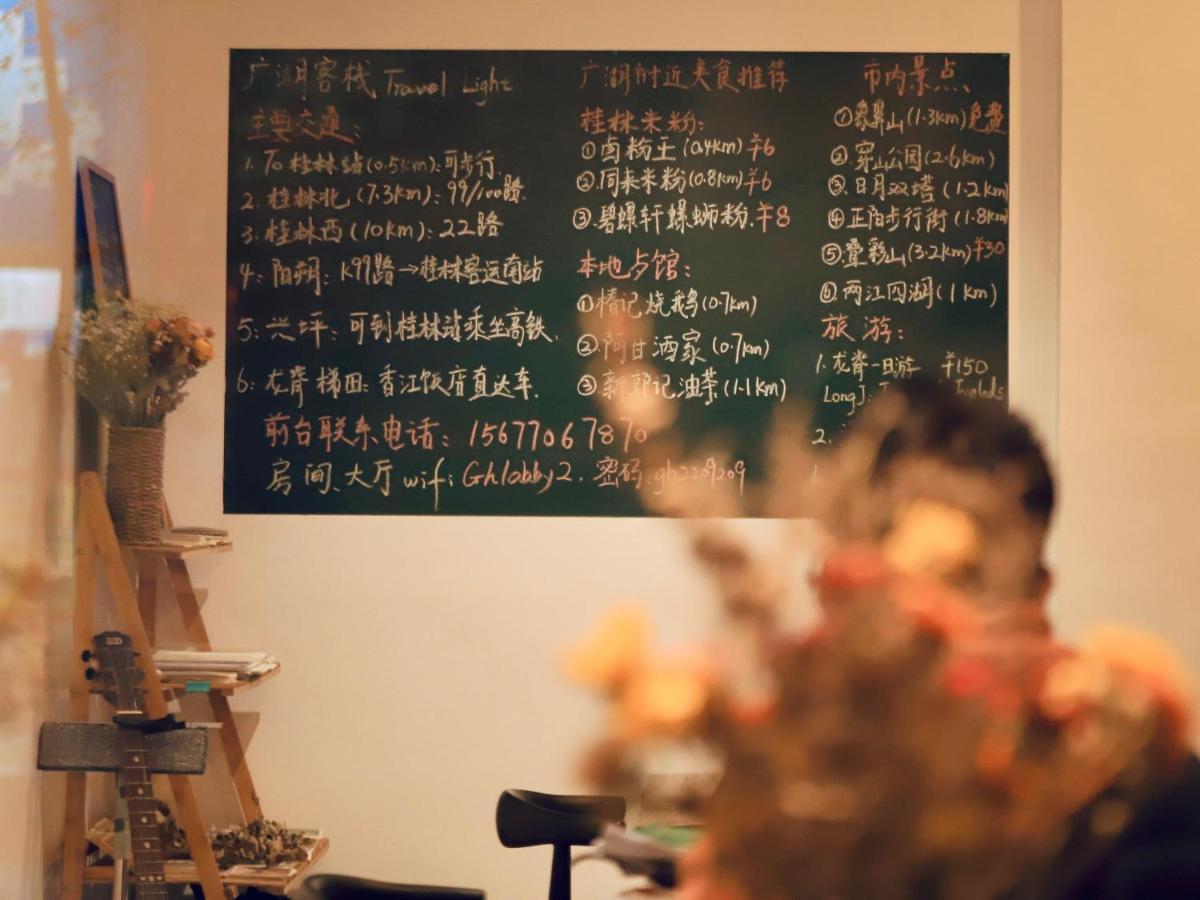 广湖客栈 Travel Light
主要交通:
1. To 桂林站(0.5km):可步行.
2. 桂林北 (7.3km): 99/100路.
3. 桂林西 (10km): 22路
4: 阳朔: K99路→桂林客运南站
5: 兴坪: 可到桂林站乘坐高铁.
6: 龙脊梯田: 香江饭店直达车.
前台联系电话: 15677067870
房间、大厅 wifi: Ghlobby2. 密码: gh2209209
广湖附近美食推荐
桂林米粉:
①卤粉王 (0.4km) ¥6
②.同来米粉(0.8km) ¥6
③.碧螺轩螺蛳粉.¥8
本地歺馆:
①椿记烧鹅(0.7km)
②.阿甘酒家 (0.7km)
③新郭记油茶(1.1km)
市内景点、
①象鼻山(1.3km)免费
②.穿山公园(2.6km)
③.日月双塔 (1.2km)
④正阳步行街 (1.8km)
⑤叠彩山(3.2km)¥30
⑥.两江四湖( 1 km)
旅游:
1.龙脊一日游 ¥150
Longj
2.